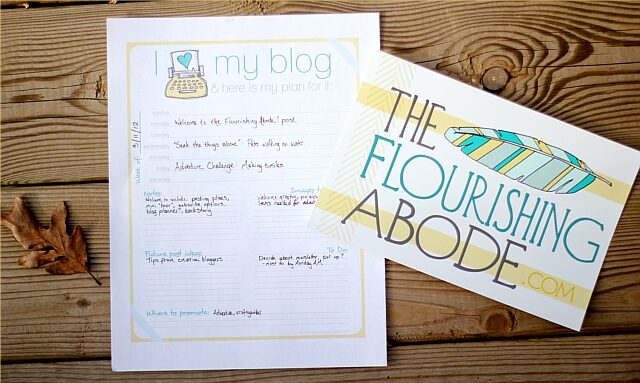 I my blog
& here is my plan for it:
Week of: 3/11/12
sunday
monday Welcome to the Flourishing Abode! post
tuesday
wednesday "Seek the things above": Peter walking on water
thursday
friday Adventure Challenge: Making smiles
saturday
Notes:
Welcome to include: posting plans,
mini "tour", subscribe options,
blog planner, back story
Images t
Welcome
needed for
Future post ideas:
Tips from creative bloggers
To Do:
Decide about newsletter, put up?
- next to by
Where to promote: Adventure,
THE
FLOURISHING
ABODE
.COM